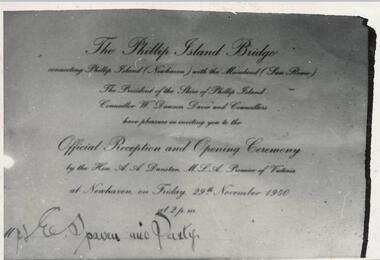 The Phillip Island Bridge
connecting Phillip Island (Newhaven) with the Mainland (San Remo)
The President of the Shire of Phillip Island
Councillor W. Dawson Davie and Councillors
have pleasure in inviting you to the
Official Reception and Opening Ceremony
by the Hon. A. A. Dunstan, M.L.A., Premier of Victoria
at Newhaven, on Friday, 29th November 1940
at 2 p.m.
and Party